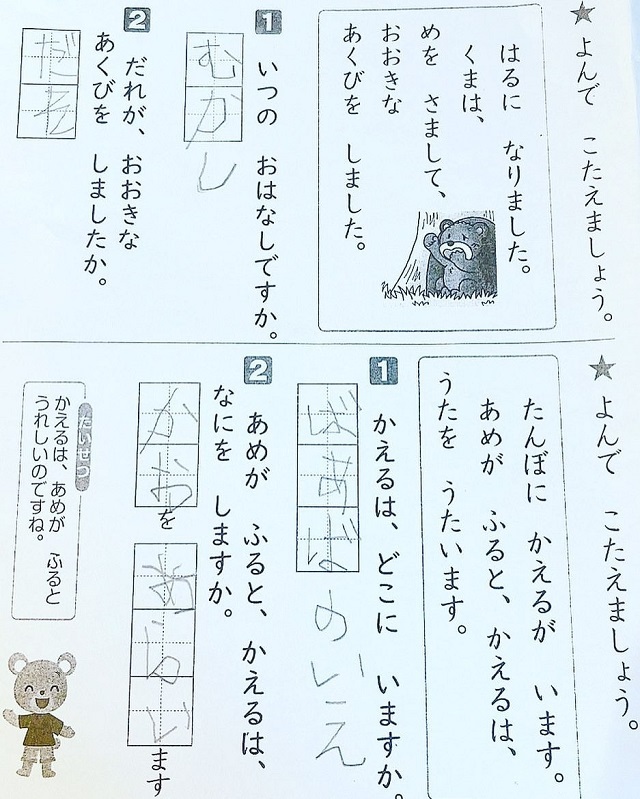 ★よんで こたえましょう。
はるに なりました。
くまは、
めを さまして、
おおきな
あくびを しました。
1 いつの おはなしですか。
むかし
2 だれが、おおきな
あくびを しましたか。
★よんで こたえましょう。
たんぼに かえるが います。
あめが ふると、かえるは、
うたを うたいます。
1 かえるは、どこに いますか。
ばあばのいえ
2 あめが ふると、かえるは、
なにを しますか。
かおを あらいます
たいせつ
かえるは、あめが ふると
うれしいのですね。